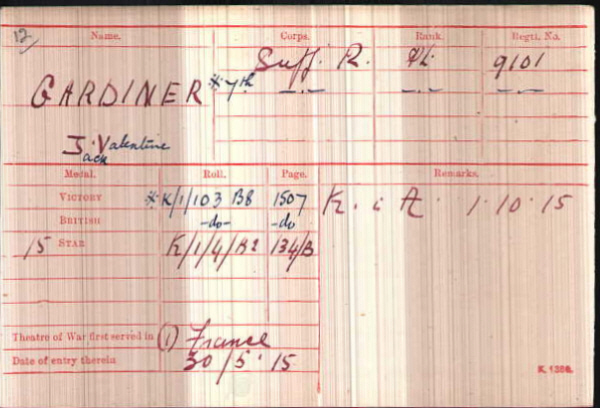 12
Name. Corps. Rank. Regtl. No.
Suff. R. Pte. 9101
GARDINER * 7th -.- -.- -.-
J. Valentine
Jack
Medal. Roll. Page. Remarks.
VICTORY * K/1/103 B8 1507 K. in A. 1.10.15
BRITISH -do- -do-
15 STAR K/1/4/B2 134/B
Theatre of War first served in (1) France
Date of entry therein 30/5.15
K. 1380.